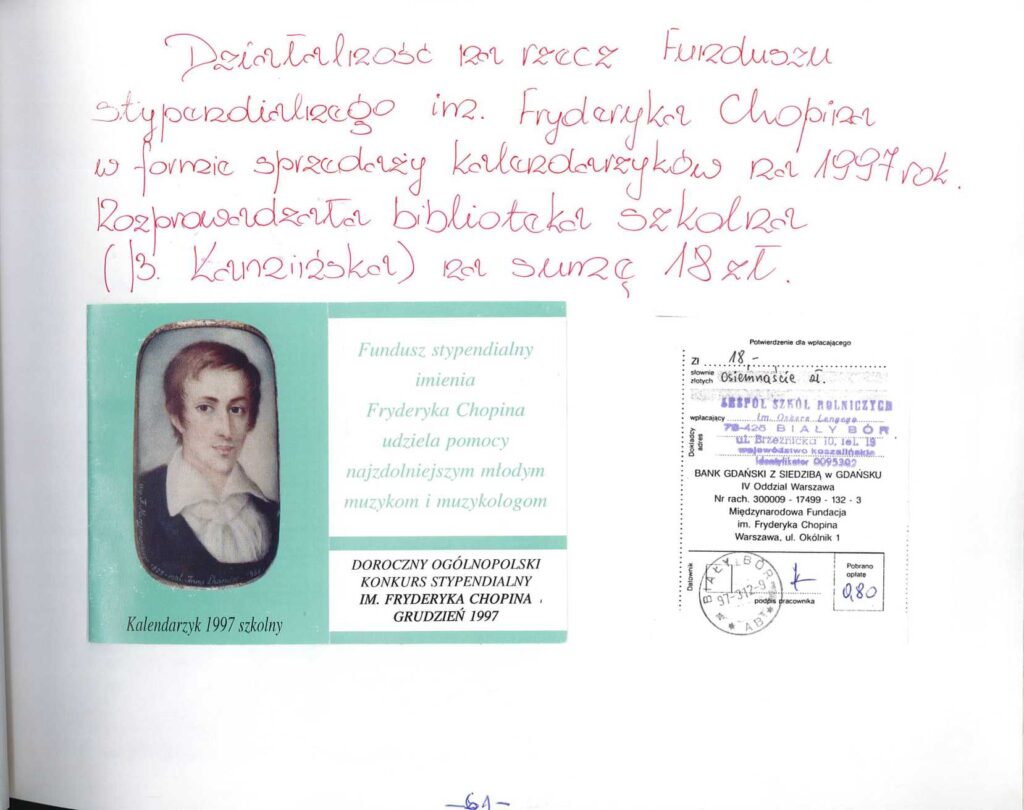 Działalność na rzecz Funduszu
stypendialnego im. Fryderyka Chopina
w formie sprzedaży kalendarzyków na 1997 rok.
Rozprowadzała biblioteka szkolna
(B. Kamińska) na sumę 18 zł.
Fundusz stypendialny
imienia
Fryderyka Chopina
udziela pomocy
najzdolniejszym młodym
muzykom i muzykologom
DOROCZNY OGÓLNOPOLSKI
KONKURS STYPENDIALNY
IM. FRYDERYKA CHOPINA
GRUDZIEŃ 1997
Kalendarzyk 1997 szkolny
Potwierdzenie dla wpłacającego
Zł 18,-
słownie złotych Osiemnaście zł.
ZESPÓŁ SZKÓŁ ROLNICZYCH
wpłacający im. Oskara Langego
78-425 BIAŁY BÓR
Dokładny adres
ul. Brzeźnicka 10, tel. 19
województwo koszalińskie
Identyfikator 0095302
BANK GDAŃSKI Z SIEDZIBĄ w GDAŃSKU
IV Oddział Warszawa
Nr rach. 300009 - 17499 - 132 - 3
Międzynarodowa Fundacja
im. Fryderyka Chopina
Warszawa, ul. Okólnik 1
Datownik
BIAŁY BÓR
podpis pracownika
Pobrano
opłatę
0,80
-61-